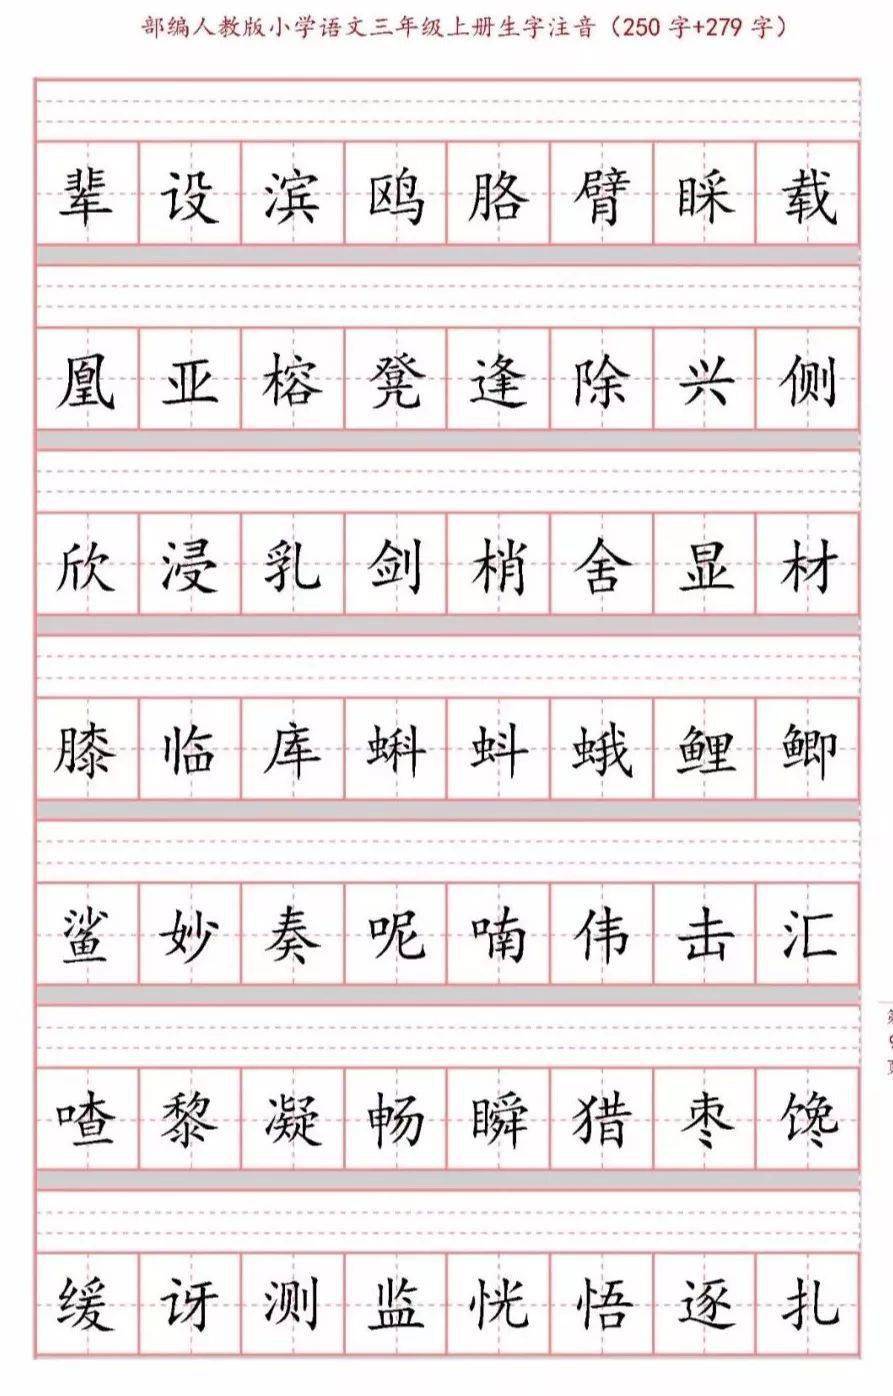 部编人教版小学语文三年级上册生字注音（250 字+279 字）
辈 设 滨 鸥 胳 臂 睬 载
凰 亚 榕 凳 逢 除 兴 侧
欣 浸 乳 剑 梢 舍 显 材
膝 临 库 蝌 蚪 蛾 鲤 鲫
鲨 妙 奏 呢 喃 伟 击 汇
喳 黎 凝 畅 瞬 猎 枣 馋
缓 讶 测 监 恍 悟 逐 扎